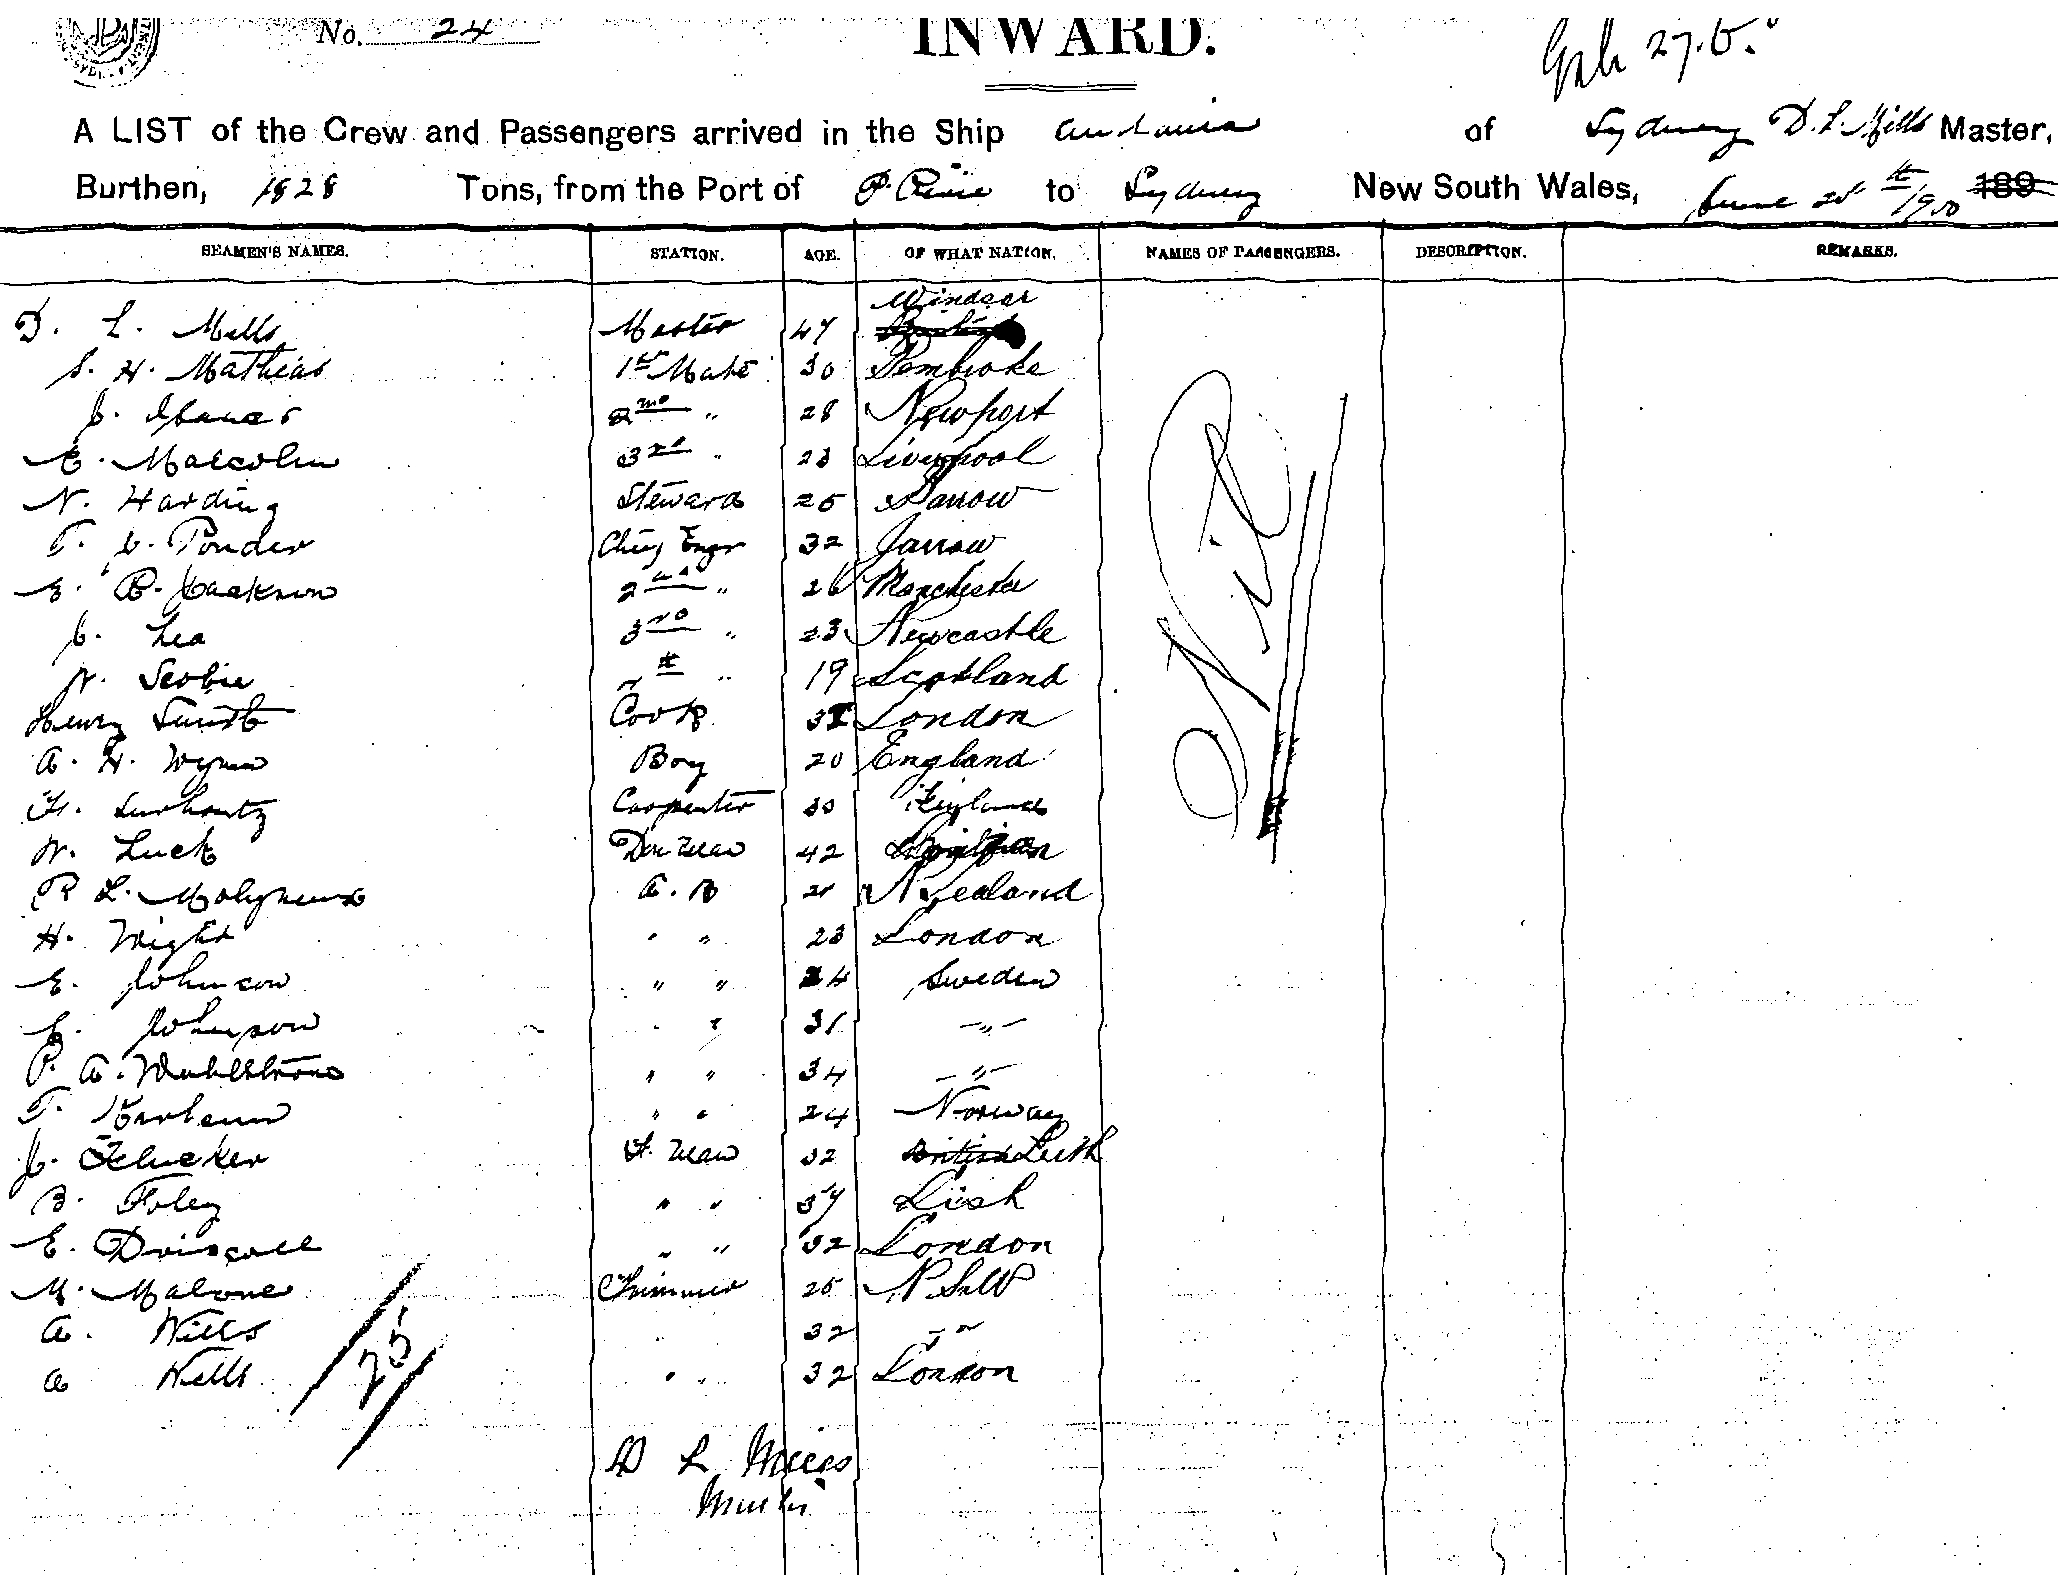 No. 24
INWARD.
27.6.
A LIST of the Crew and Passengers arrived in the Ship of Sydney D. L. Mills Master,
Burthen, 1828 Tons, from the Port of P. Pirie to Sydney New South Wales, June 28th 1900 189
SEAMEN'S NAMES. STATION. AGE. OF WHAT NATION. NAMES OF PASSENGERS. DESCRIPTION. REMARKS.
D. L. Mills Master 47 Windsor
S. H. Mathias 1st Mate 30 Pembroke
J. 2nd " 28 Newport
E. Malcolm 3rd " 23 Liverpool
N. Harding Steward 25 Barrow
T. J. Ponder Chief Engr 32 Jarrow
E. B. Jackson 2nd " 26 Manchester
J. Lea 3rd " 23 Newcastle
W. Scobie 4th " 19 Scotland
Henry Smith Cook London
A. H. Wynn Boy 20 England
Carpenter 30 Finland
W. Luck Donkman 42
R L. Molyneux A. B 21 N Zealand
H. Wight " " 23 London
E. Johnson " " 24 Sweden
E. Johnson " " 31 "
P. A. Wahlstrom " " 34 "
T. " " 24 Norway
J. Flucker F. man 32 British Leith
B. Foley " " 37 Irish
E. Driscoll " " 32 London
M. Malone Trimmer 25 N.S.W
A. Wills " 32 "
A Wells " " 32 London
Nil
25
D L Mills
Master